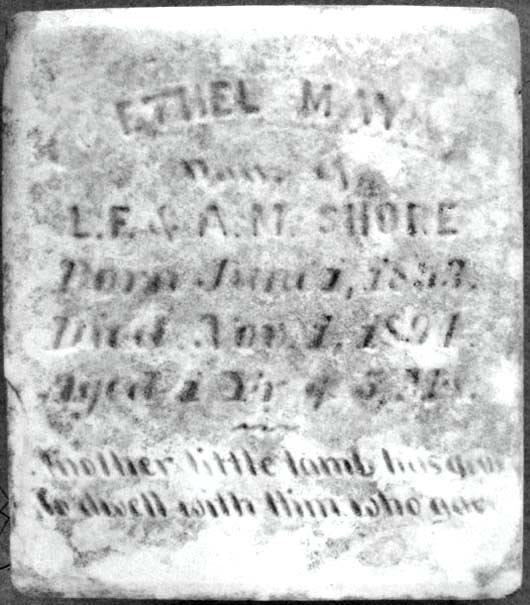 ETHEL MAY
Dau. of
L.F. & A.M. SHORE
Born June 1, 1893.
Died Nov. 1, 1894.
Aged 1 Yr & 5 Ms.
Another little lamb has gone
To dwell with Him who gave